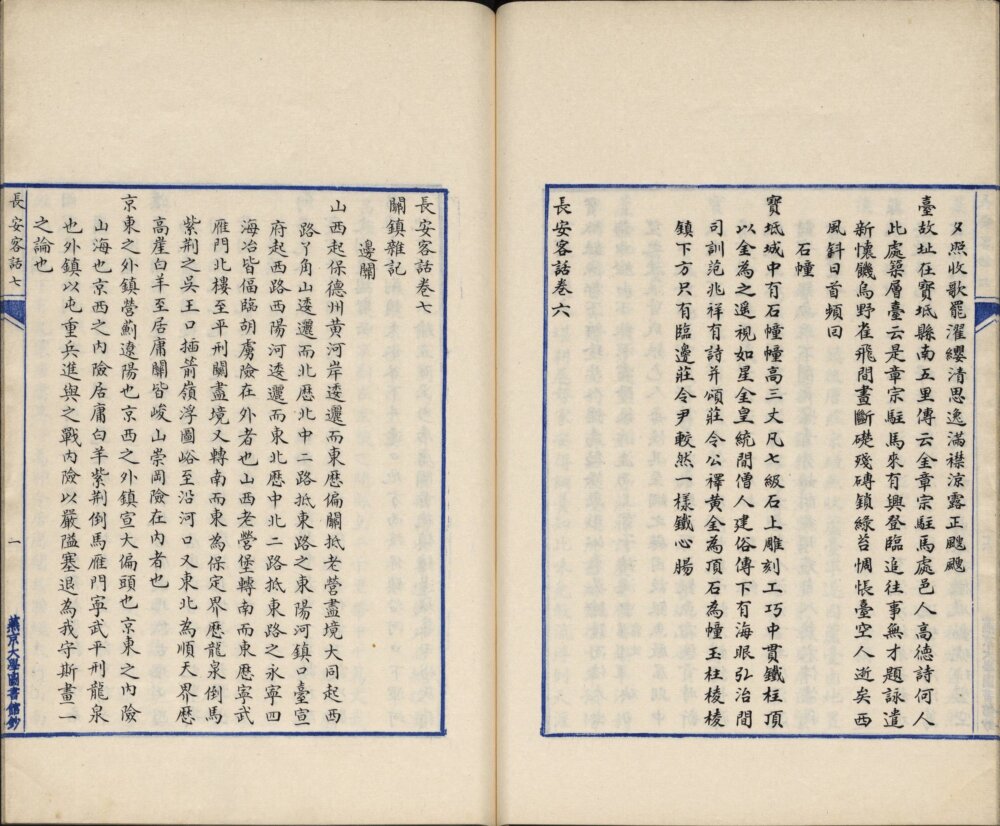 夕照收歌罷濯纓清思逸滿襟涼露正颸颸
臺故址在寶坻縣南五里傳云金章宗駐馬處邑人高德詩何人
此處築層臺云是章宗駐馬來有興登臨追往事無才題詠遣
新懷饑烏野雀飛間晝斷礎殘磚鎖綠苔惆悵臺空人逝矣西
風斜日首頻回
石幢
寶坻城中有石幢幢高三丈凡七級石上雕刻工巧中貫鐵柱頂
以金為之遥視如星金皇統間僧人建俗傳下有海眼弘治間
司訓范兆祥有詩并頌莊令公襗黄金為頂石為幢玉柱棱棱
鎮下方只有臨邊莊令尹較然一樣鐵心腸
長安客話卷六
長安客話卷七
關鎮雜記
邊關
山西起保德州黄河岸逶邐而東歷偏關抵老營盡境大同起西
路丫角山逶邐而北歷北中二路抵東路之東陽河鎮口臺宣
府起西路西陽河逶邐而東北歷中北二路抵東路之永寧四
海冶皆偪臨胡虜險在外者也山西老營堡轉南而東歷寧武
雁門北樓至平刑關盡境又轉南而東為保定界歷龍泉倒馬
紫荆之吳王口插箭嶺浮圖峪至沿河口又東北為順天界歷
高崖白羊至居庸關皆峻山崇岡險在內者也
京東之外鎮營薊遼陽也京西之外鎮宣大偏頭也京東之內險
山海也京西之內險居庸白羊紫荆倒馬雁門寧武平刑龍泉
也外鎮以屯重兵進與之戰內險以嚴隘塞退為我守斯畫一
之論也
長安客話七
一
燕京大學圖書館鈔